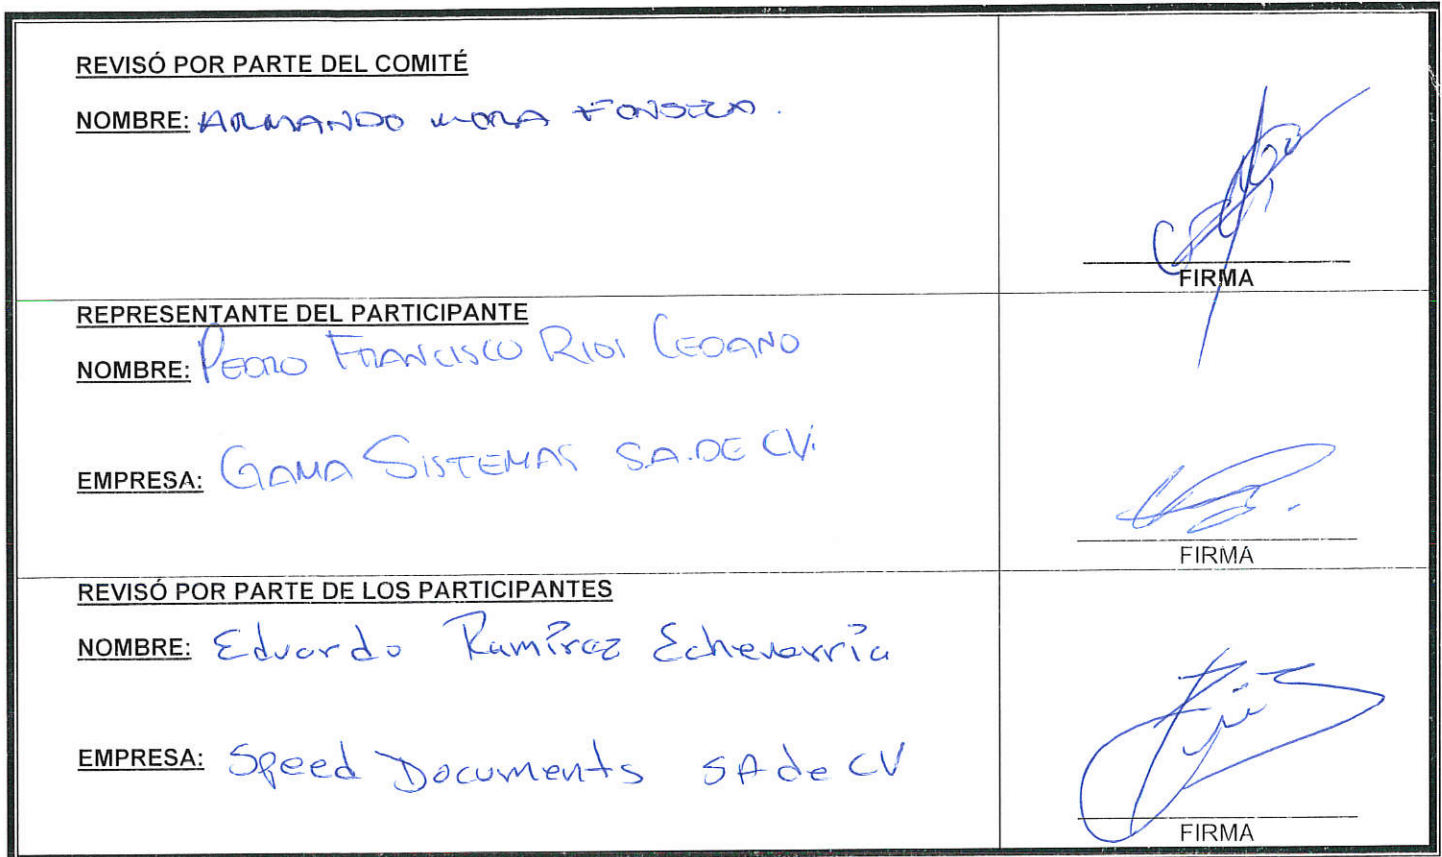 REVISÓ POR PARTE DEL COMITÉ
NOMBRE: ARMANDO MORA FONSECA.
FIRMA
REPRESENTANTE DEL PARTICIPANTE
NOMBRE: PEDRO FRANCISCO CEDANO
EMPRESA: GAMA SISTEMAS S.A. DE CV.
FIRMA
REVISÓ POR PARTE DE LOS PARTICIPANTES
NOMBRE: Eduardo Ramírez Echevarría
EMPRESA: Speed Documents SA de CV
FIRMA